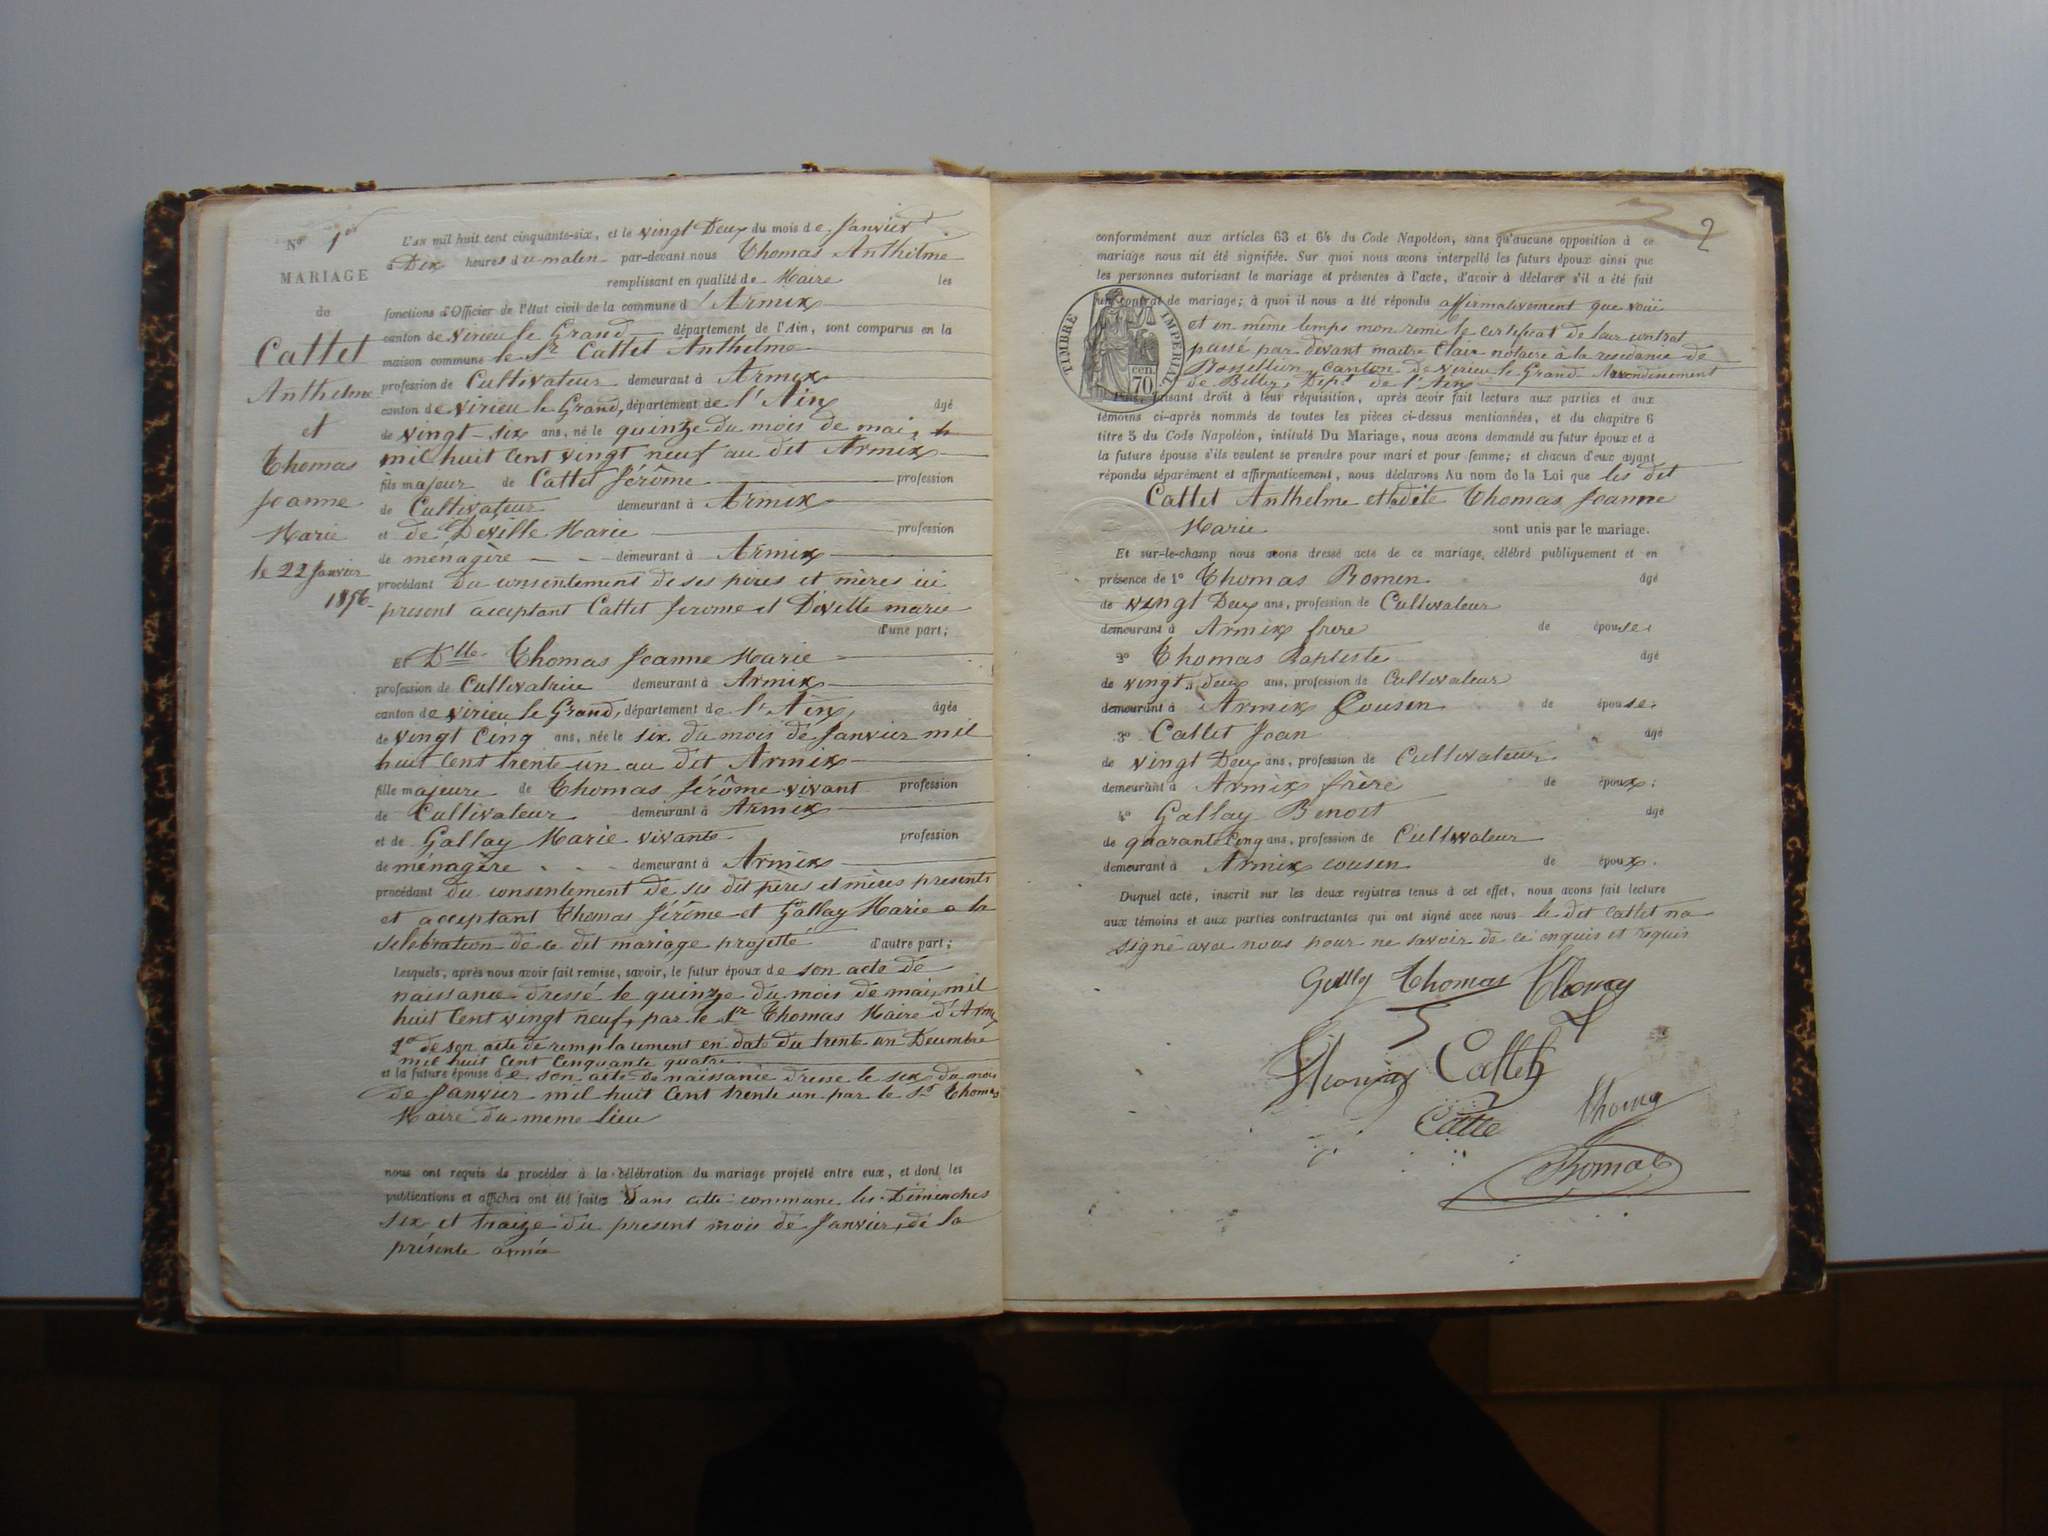 No 1er
MARIAGE
de
Cattet
Anthelme
et
Thomas
Jeanne
Marie
le 22 Janvier
1856
L'AN mil huit cent cinquante-six, et le vingt Deux du mois de Janvier
à Dix heures du maten par-devant nous Thomas Anthelme
remplissant en qualité de Maire les
fonctions d'Officier de l'état civil de la commune d'Armix
canton de virieu le Grand département de l'Ain, sont comparus en la
maison commune le Sr Cattet Anthelme
profession de Cultivateur demeurant à Armix
canton de virieu le Grand, département de l'Ain âgé
de vingt-six ans, né le quinze du mois de mai,
mil huit Cent vingt neuf au dit Armix
fils majeur de Cattet Jérôme profession
de Cultivateur demeurant à Armix
et de Deville Marie profession
de ménagère demeurant à Armix
procédant du consentement de ses pères et mères ici
present acceptant Cattet Jerome et Deville marie
d'une part;
Et Dlle Thomas Jeanne Marie
profession de Cultivatrice demeurant à Armix
canton de virieu le Grand, département de l'Ain, âgée
de vingt Cinq ans, née le six du mois de Janvier mil
huit Cent trente un au dit Armix
fille majeure de Thomas Jérôme vivant profession
de Cultivateur demeurant à Armix
et de Gallay Marie vivante profession
de ménagère demeurant à Armix
procédant du consentement de ses dit pères et mères presents
et acceptant Thomas Jérôme et Gallay Marie a la
selebration de ce dit mariage projetté d'autre part;
Lesquels, après nous avoir fait remise, savoir, le futur époux de son acte de
naissance dressé le quinze du mois de mai, mil
huit Cent vingt neuf, par le Sr Thomas Maire d'Armix
2o de son acte de remplacement en date du trente un Decembre
mil huit Cent Cinquante quatre
et la future épouse de son acte de naissance dresse le six du mois
de Janvier mil huit Cent trente un par le Sr Thomas
Maire du meme lieu
nous ont requis de procéder à la célébration du mariage projeté entre eux, et dont les
publications et affiches ont été faites Dans cette commune les Dimenches
six et traize du present mois de Janvier, de la
présente année
2
conformément aux articles 63 et 64 du Code Napoléon, sans qu'aucune opposition à ce
mariage nous ait été signifiée. Sur quoi nous avons interpellé les futurs époux ainsi que
les personnes autorisant le mariage et présentes à l'acte, d'avoir à déclarer s'il a été fait
un contrat de mariage; à quoi il nous a été répondu affirmativement que voüi
et en même temps mon remi le certificat de leur contrat
passé par devant maitre Clair notaire à la residence de
Rossillion, Canton de virieu le Grand Arrondissement
de Belley, Dept de l'Ain
TIMBRE IMPERIAL
70 cen.
faisant droit à leur réquisition, après avoir fait lecture aux parties et aux
témoins ci-après nommés de toutes les pièces ci-dessus mentionnées, et du chapitre 6
titre 5 du Code Napoléon, intitulé Du Mariage, nous avons demandé au futur époux et à
la future épouse s'ils veulent se prendre pour mari et pour femme; et chacun d'eux ayant
répondu séparément et affirmativement, nous déclarons Au nom de la Loi que les dit
Cattet Anthelme et ladite Thomas Jeanne
Marie sont unis par le mariage.
Et sur-le-champ nous avons dressé acte de ce mariage, célébré publiquement et en
présence de 1o Thomas Romen âgé
de vingt Deux ans, profession de Cultivateur
demeurant à Armix frere de épouse;
2o Thomas Baptiste âgé
de vingt deux ans, profession de Cultivateur
demeurant à Armix Cousin de épouse;
3o Cattet Jean âgé
de vingt Deux ans, profession de Cultivateur
demeurant à Armix frère de époux;
4o Gallay Benoit âgé
de quarante Cinq ans, profession de Cultivateur
demeurant à Armix cousen de époux.
Duquel acte, inscrit sur les deux registres tenus à cet effet, nous avons fait lecture
aux témoins et aux parties contractantes qui ont signé avec nous le dit Cattet na
signé avec nous pour ne savoir de ce enquis et requis
Thomas
Cattet
Catte
Thomas